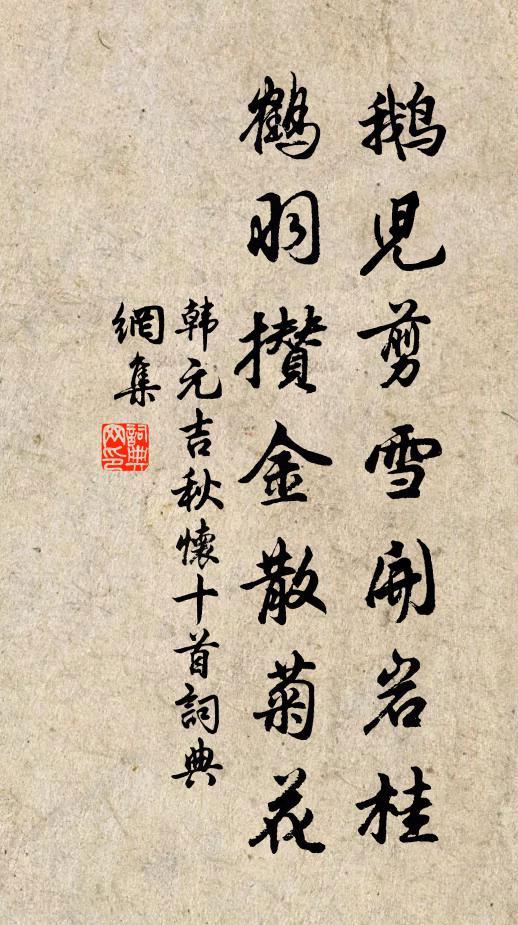 鵝兒剪雪開岩桂
鶴羽攢金散菊花
韩元吉秋懷十首詞典
網集
詞典
网印